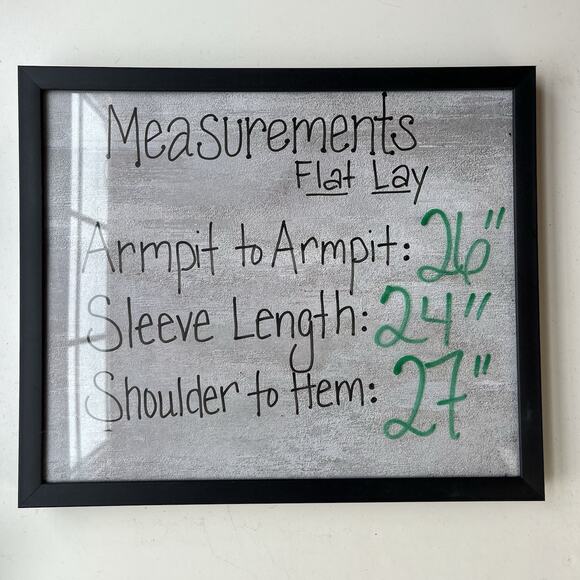 Measurements
Flat Lay
Armpit to Armpit: 26"
Sleeve Length: 24"
Shoulder to Hem: 27"